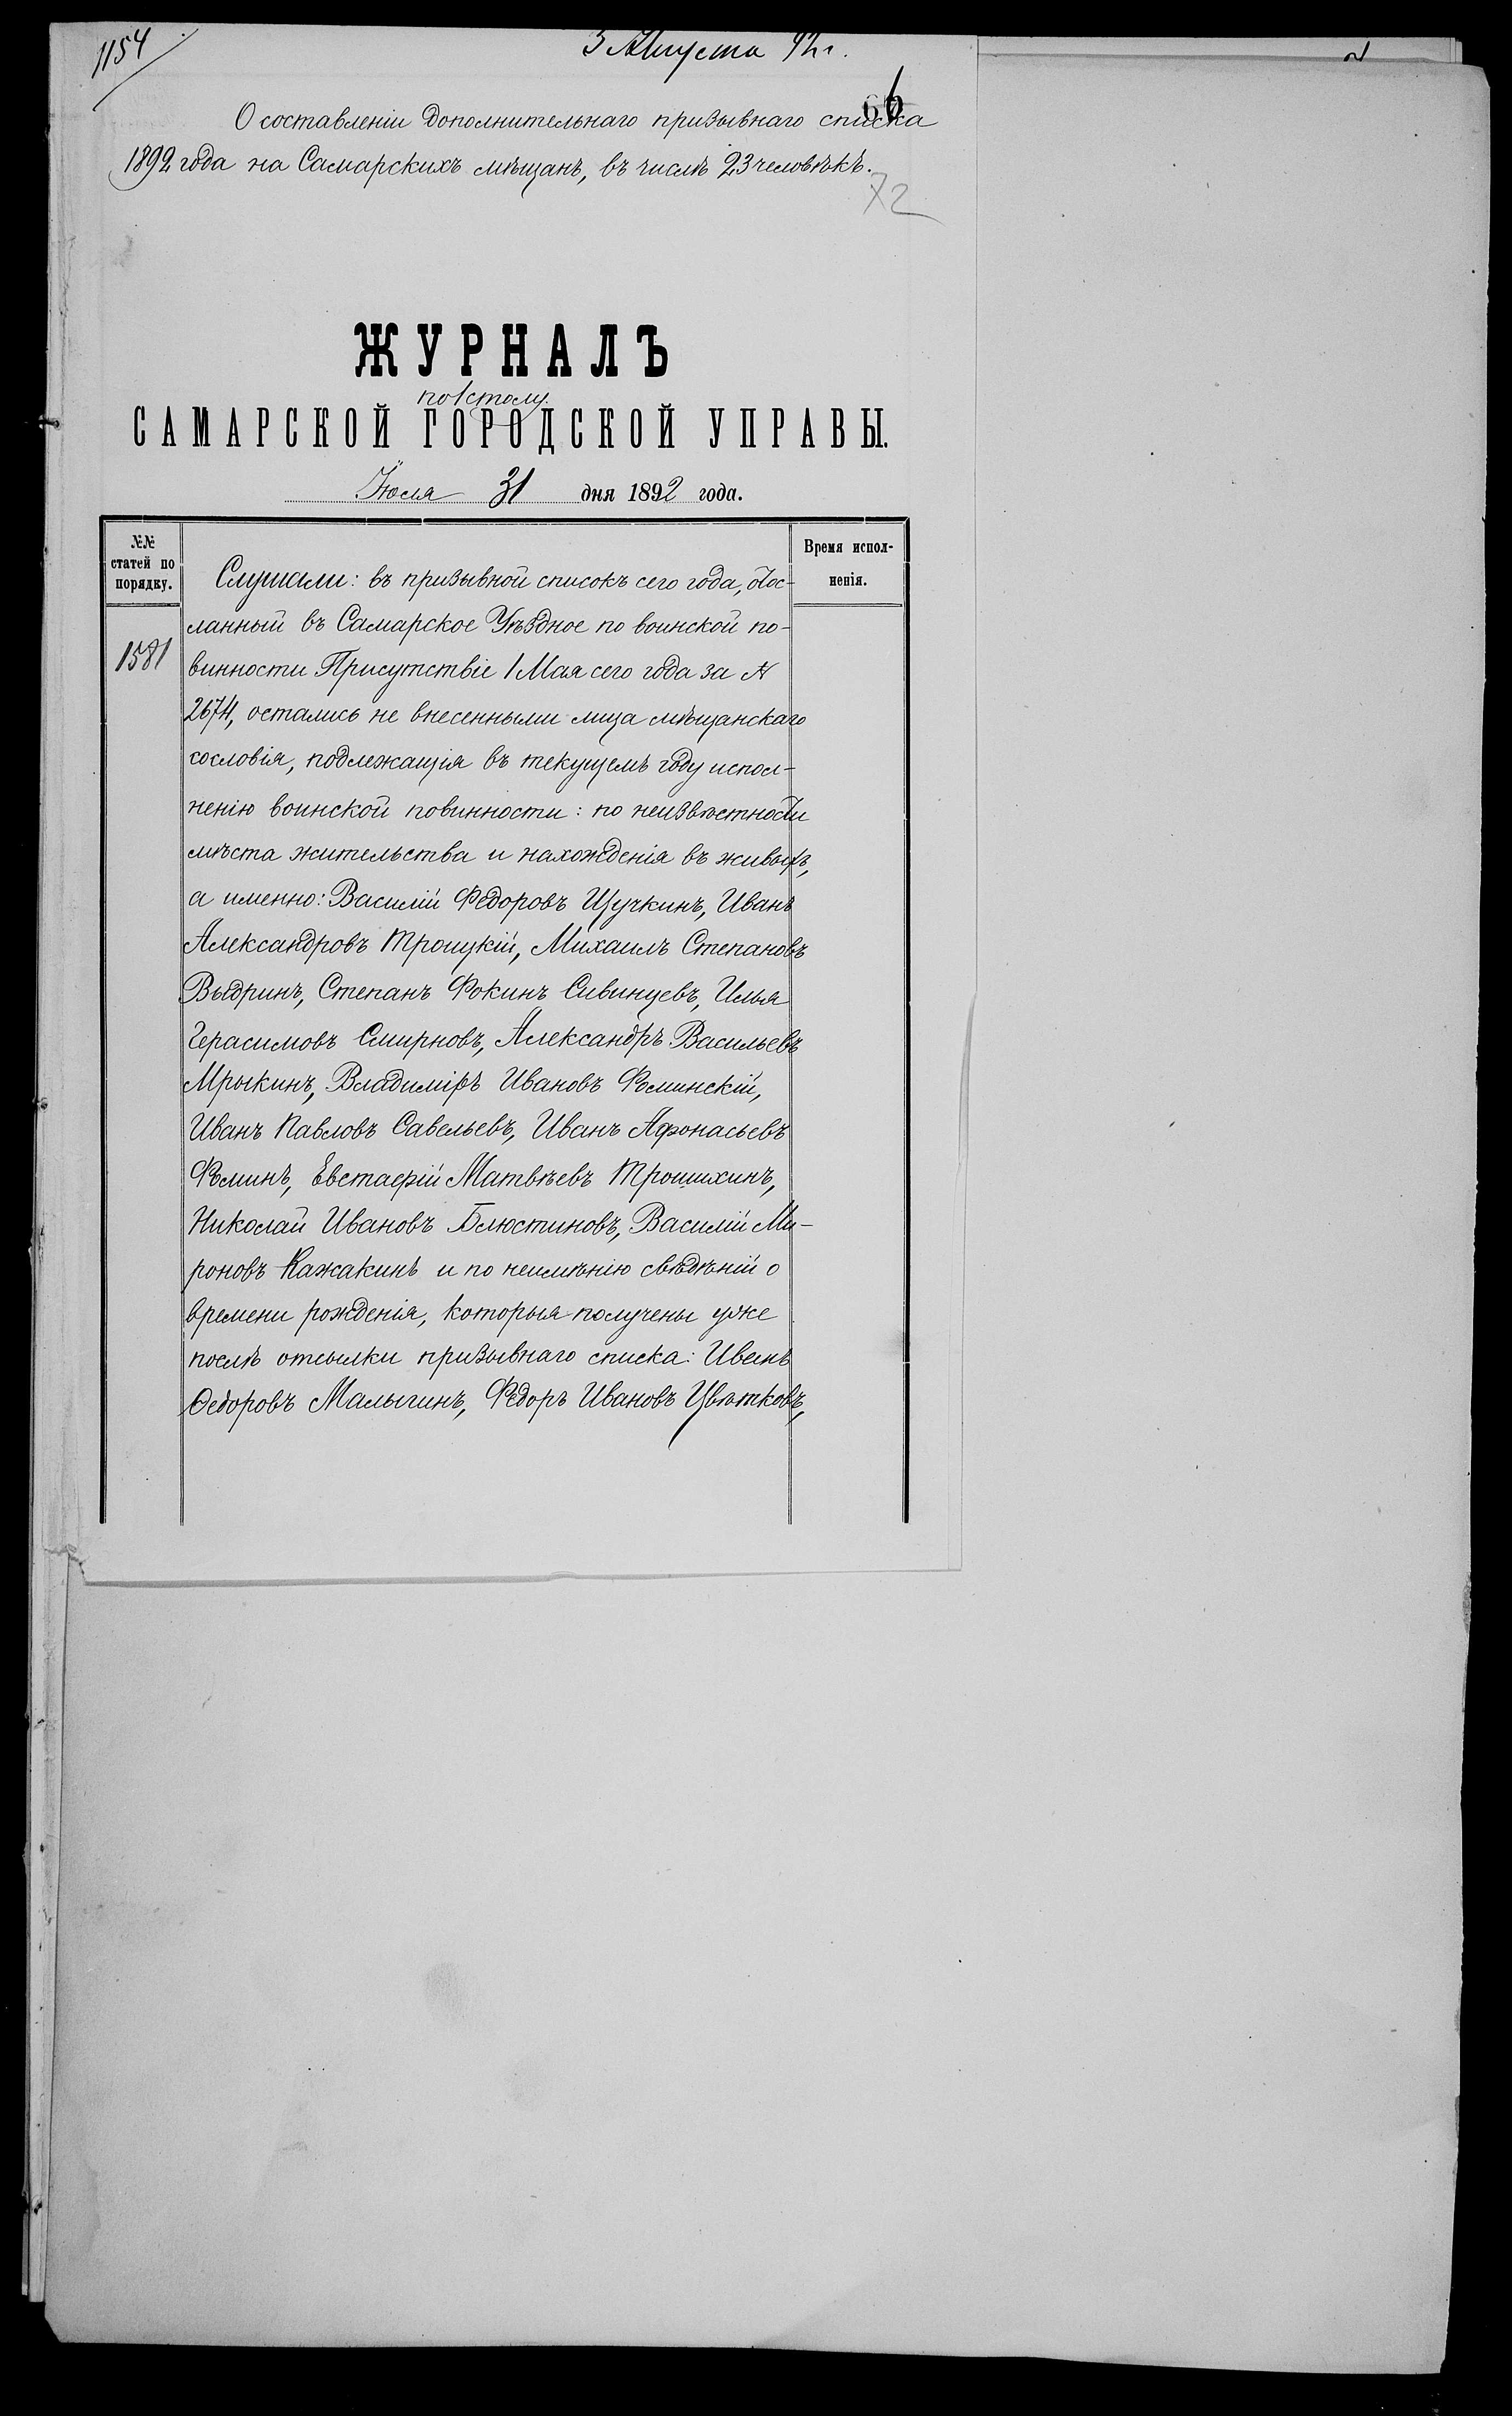 1154
3 Августа 92 г.
66
О составленіи дополнительнаго призывнаго списка
1892 года на Самарскихъ мѣщанъ, въ числѣ 23 человѣкъ.
72
ЖУРНАЛЪ
по 1 столу.
САМАРСКОЙ ГОРОДСКОЙ УПРАВЫ.
Іюля 31 дня 1892 года.
№№ статей по порядку.
Время исполненія.
1581
Слушали: въ призывной списокъ сего года, отос-
ланный въ Самарское Уѣздное по воинской по-
винности Присутствіе 1 Мая сего года за №
2674, остались не внесенными лица мѣщанскаго
сословія, подлежащія въ текущемъ году испол-
ненію воинской повинности: по неизвѣстности
мѣста жительства и нахожденія въ живыхъ,
а именно: Василій Федоровъ Щучкинъ, Иванъ
Александровъ Троицкій, Михаилъ Степановъ
Выдринъ, Степанъ Фокинъ Сивинцевъ, Илья
Герасимовъ Смирновъ, Александръ Васильевъ
Мрыкинъ, Владиміръ Ивановъ Фоминскій,
Иванъ Павловъ Савельевъ, Иванъ Афонасьевъ
Фоминъ, Евстафій Матвѣевъ Трошихинъ,
Николай Ивановъ Блюстиновъ, Василій Ми-
роновъ Кажакинъ и по неимѣнію свѣдѣній о
времени рожденія, которыя получены уже
послѣ отсылки призывнаго списка: Иванъ
Ѳедоровъ Малыгинъ, Федоръ Ивановъ Цвѣтковъ,